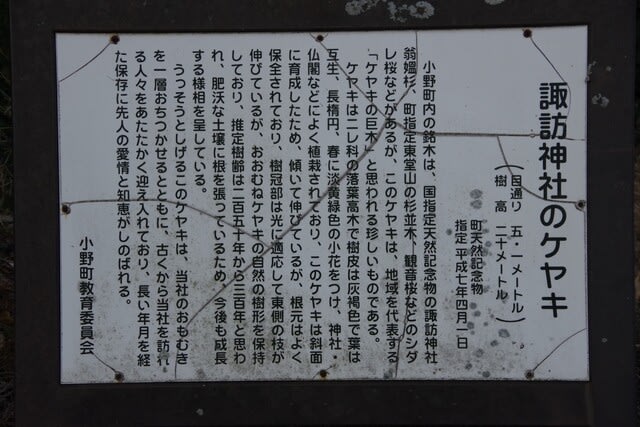 諏訪神社のケヤキ
(目通り 五・一メートル
樹高 二十メートル)
町天然記念物
指定 平成七年四月一日
小野町内の銘木は、国指定天然記念物の諏訪神社
翁媼杉、町指定東堂山の杉並木、観音桜などのシダ
レ桜などがあるが、このケヤキは、地域を代表する
「ケヤキの巨木」と思われる珍しいものである。
ケヤキはニレ科の落葉高木で樹皮は灰褐色で葉は
互生、長楕円、春に淡黄緑色の小花をつけ、神社・
仏閣などによく植栽されており、このケヤキは斜面
に育成したため、傾いて伸びているが、根元はよく
保全されており、樹冠部は光に適応して東側の枝が
伸びているが、おおむねケヤキの自然の樹形を保持
しており、推定樹齢は二百五十年から三百年と思わ
れ、肥沃な土壌に根を張っているため、今後も成長
する様相を呈している。
うっそうとしげるこのケヤキは、当社のおもむき
を一層おちつかせるとともに、古くから当社を訪れ
る人々をあたたかく迎え入れており、長い年月を経
た保存に先人の愛情と知恵がしのばれる。
小野町教育委員会